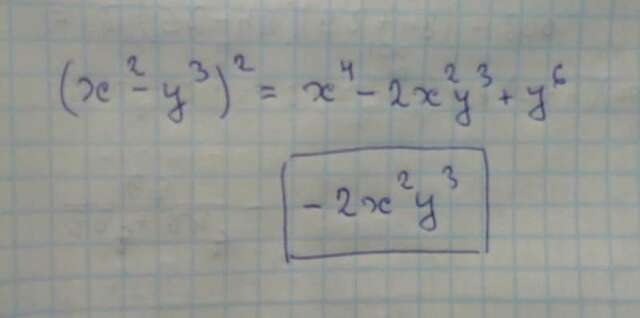 (x² - y³)² = x⁴ - 2x²y³ + y⁶
- 2x²y³